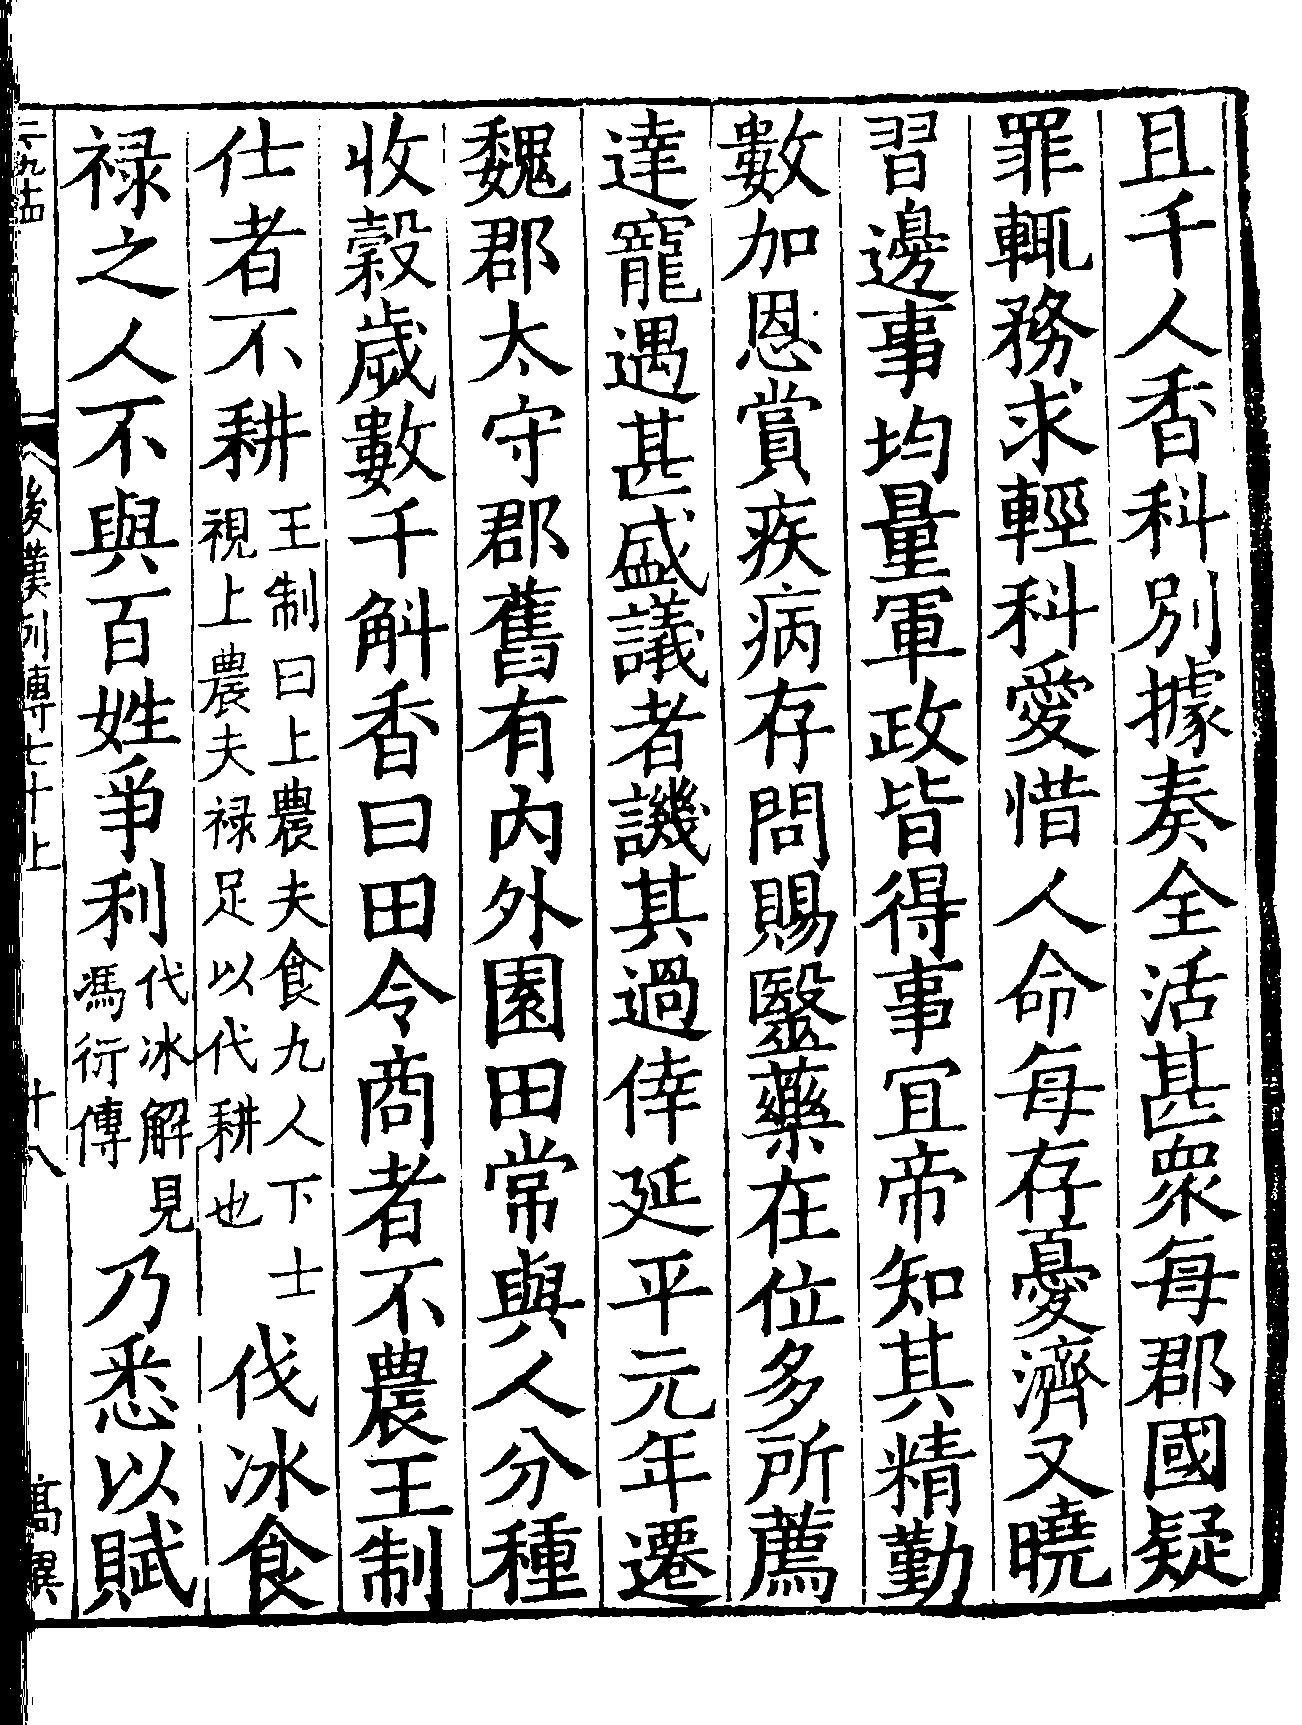 且千人香科別據奏全活甚衆每郡國疑
罪輒務求輕科愛惜人命每存憂濟又曉
習邊事均量軍政皆得事宜帝知其精勤
數加恩賞疾病存問賜醫藥在位多所薦
達寵遇甚盛議者譏其過倖延平元年遷
魏郡太守郡舊有內外園田常與人分種
收穀歲數千斛香曰田令商者不農王制
仕者不耕王制曰上農夫食九人下士視上農夫禄足以代耕也伐冰食
禄之人不與百姓爭利代冰解見馮衍傳乃悉以賦
後漢列傳七十上
十八